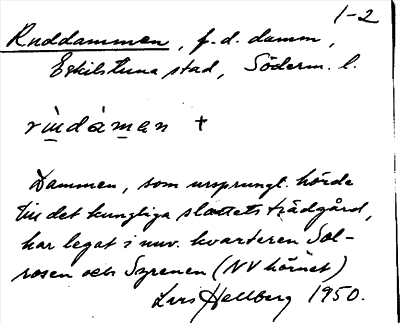 1-2
Ruddammen, f.d. damm,
Eskilstuna stad, Söderm. l.
rùdàman +
Dammen, som ursprungl. hörde
till det kungliga slottets trädgård,
har legat i nuv. kvarteren Sol-
rosen och Syrenen (NV hörnet)
Lars Hellberg 1950.